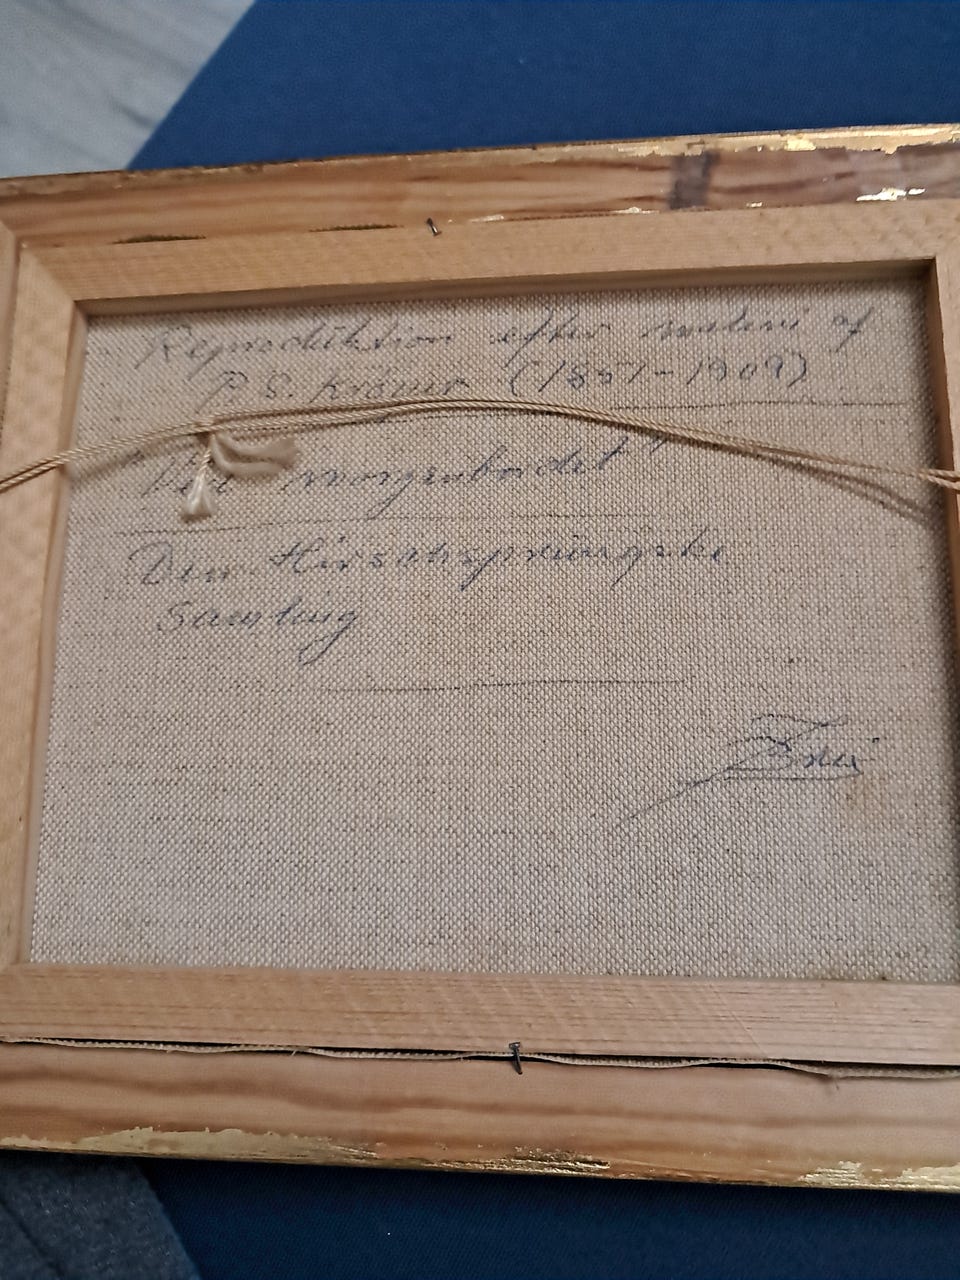 Reproduktion efter maleri af
P. S. Krøyer (1851-1909)
"Ved morgenbordet"
Den Hirschsprungske
samling